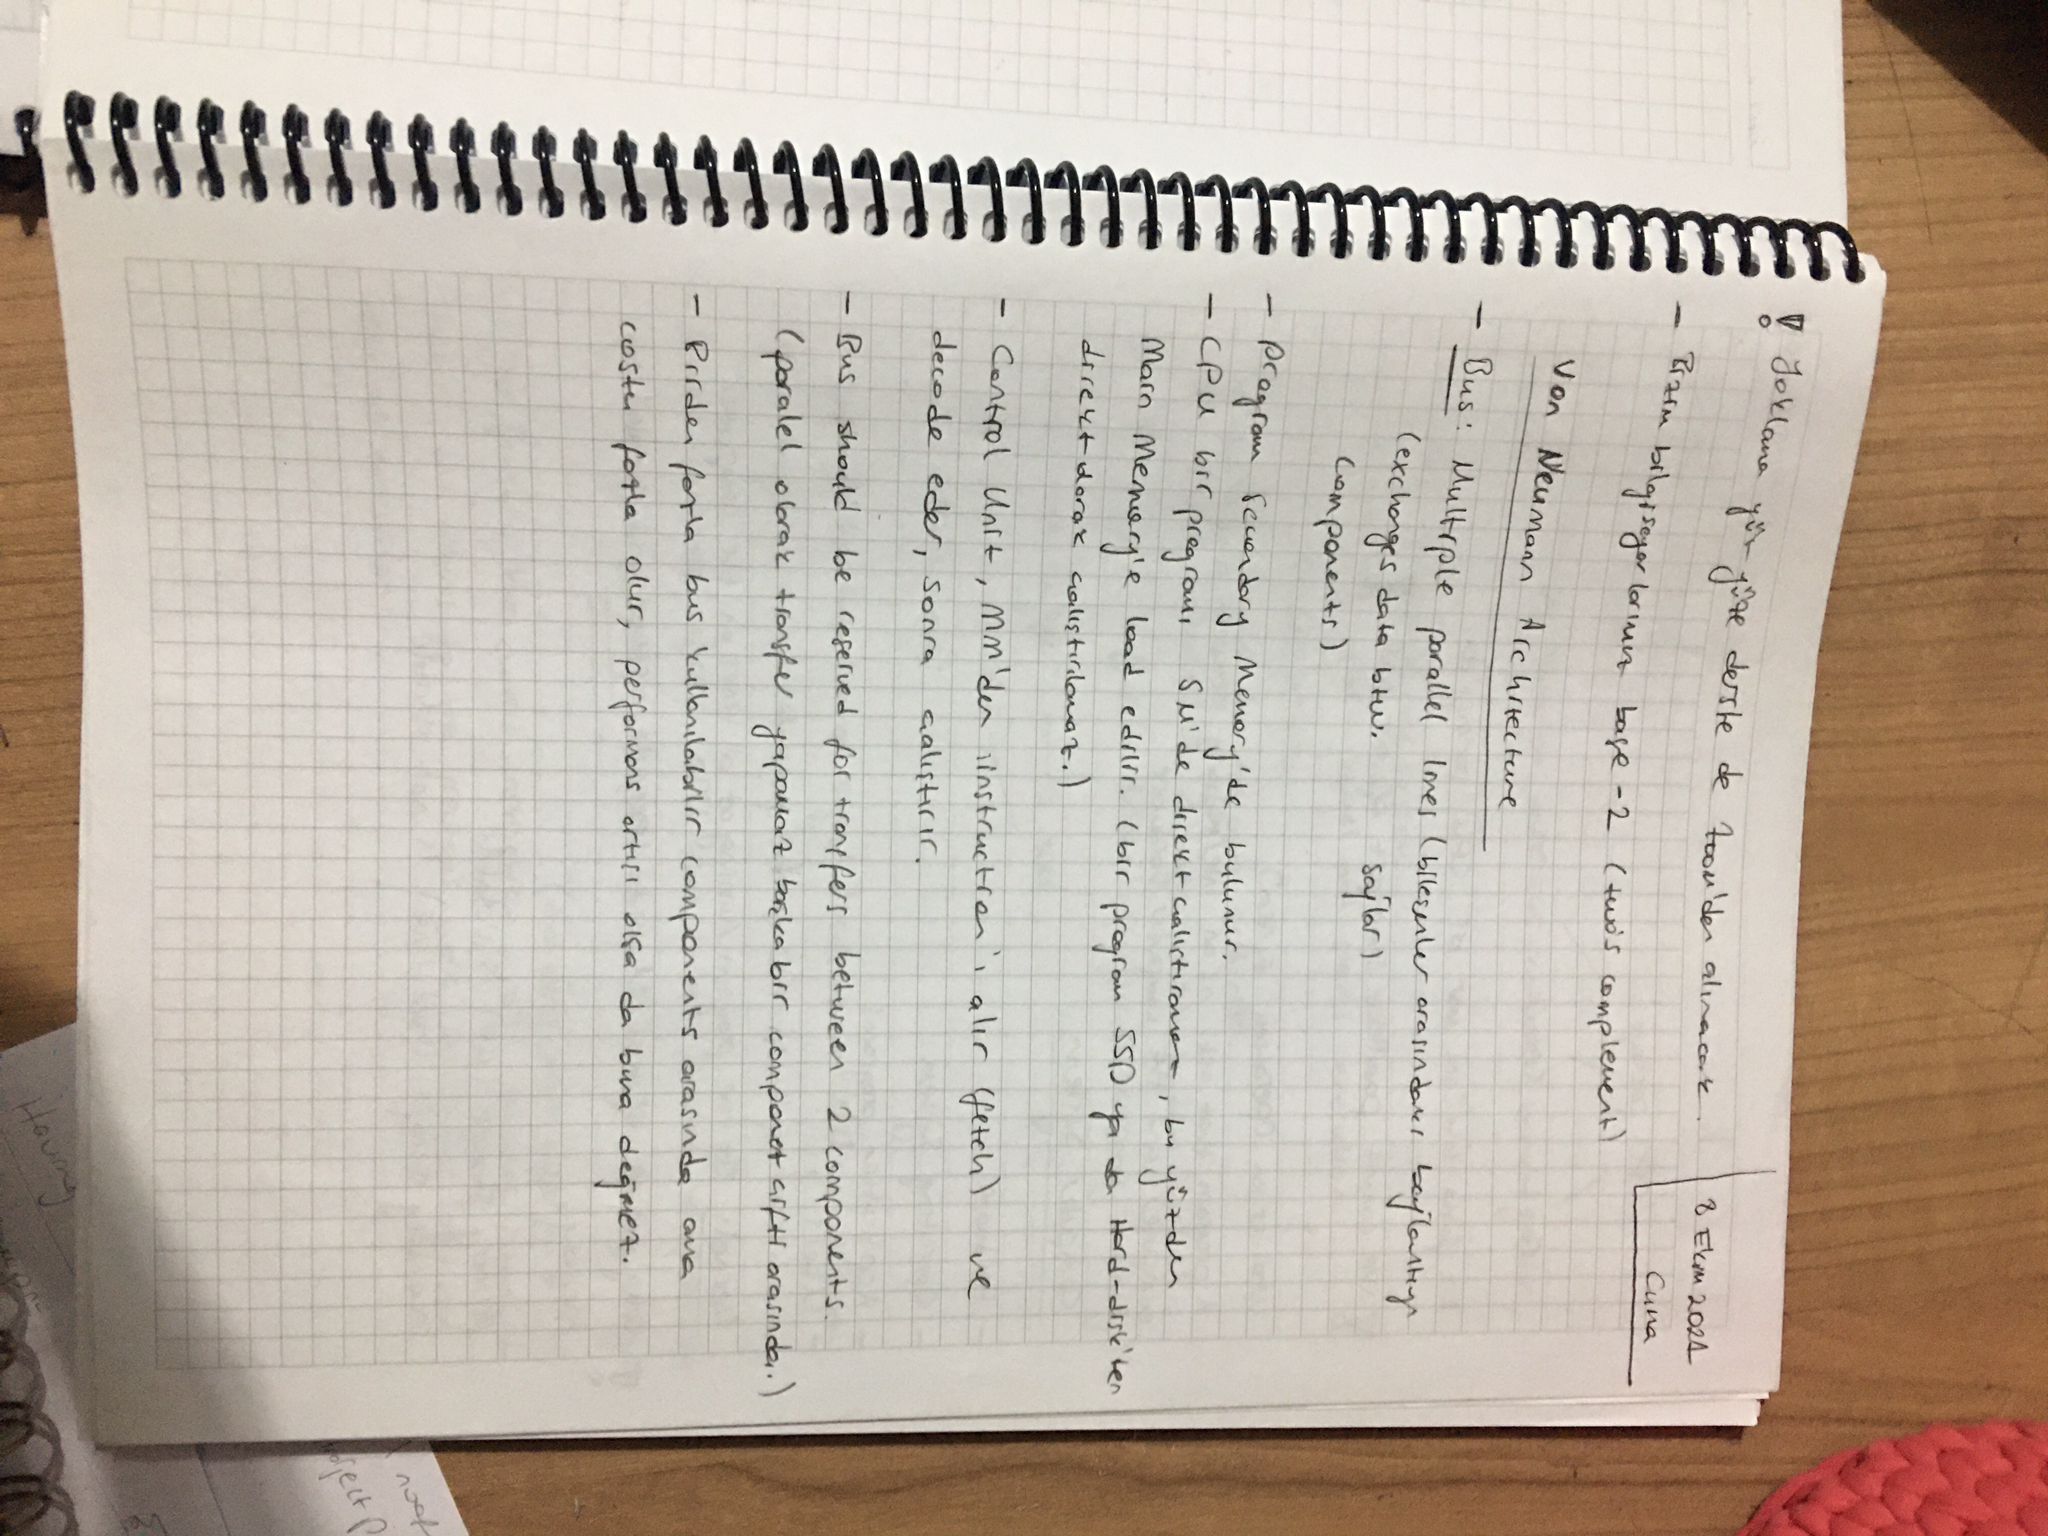 ! Yoklama yüz yüze derste de Zoom'dan alınacak.
8 Ekim 2021
Cuma
- Bizim bilgisayarlarımız base-2 (two's complement)
Von Neumann Architecture
- Bus: Multiple parallel lines (bileşenler arasındaki bağlantıyı
(exchanges data btw. sağlar)
components)
- Program Secondary Memory'de bulunur.
- CPU bir programı SM'de direkt calıstıramaz, bu yüzden
Main Memory'e load edilir. (bir program SSD ya da Hard-disk'ten
direkt olarak calıstırılamaz.)
- Control Unit, MM'den instruction'ı alır (fetch) ve
decode eder, sonra calıstırır.
- Bus should be reserved for tranfers between 2 components.
(paralel olarak transfer yapamaz başka bir component cifti arasında.)
- Birden fazla bus kullanılabilir components arasında ama
costu fazla olur, performans artışı olsa da buna değmez.
Having